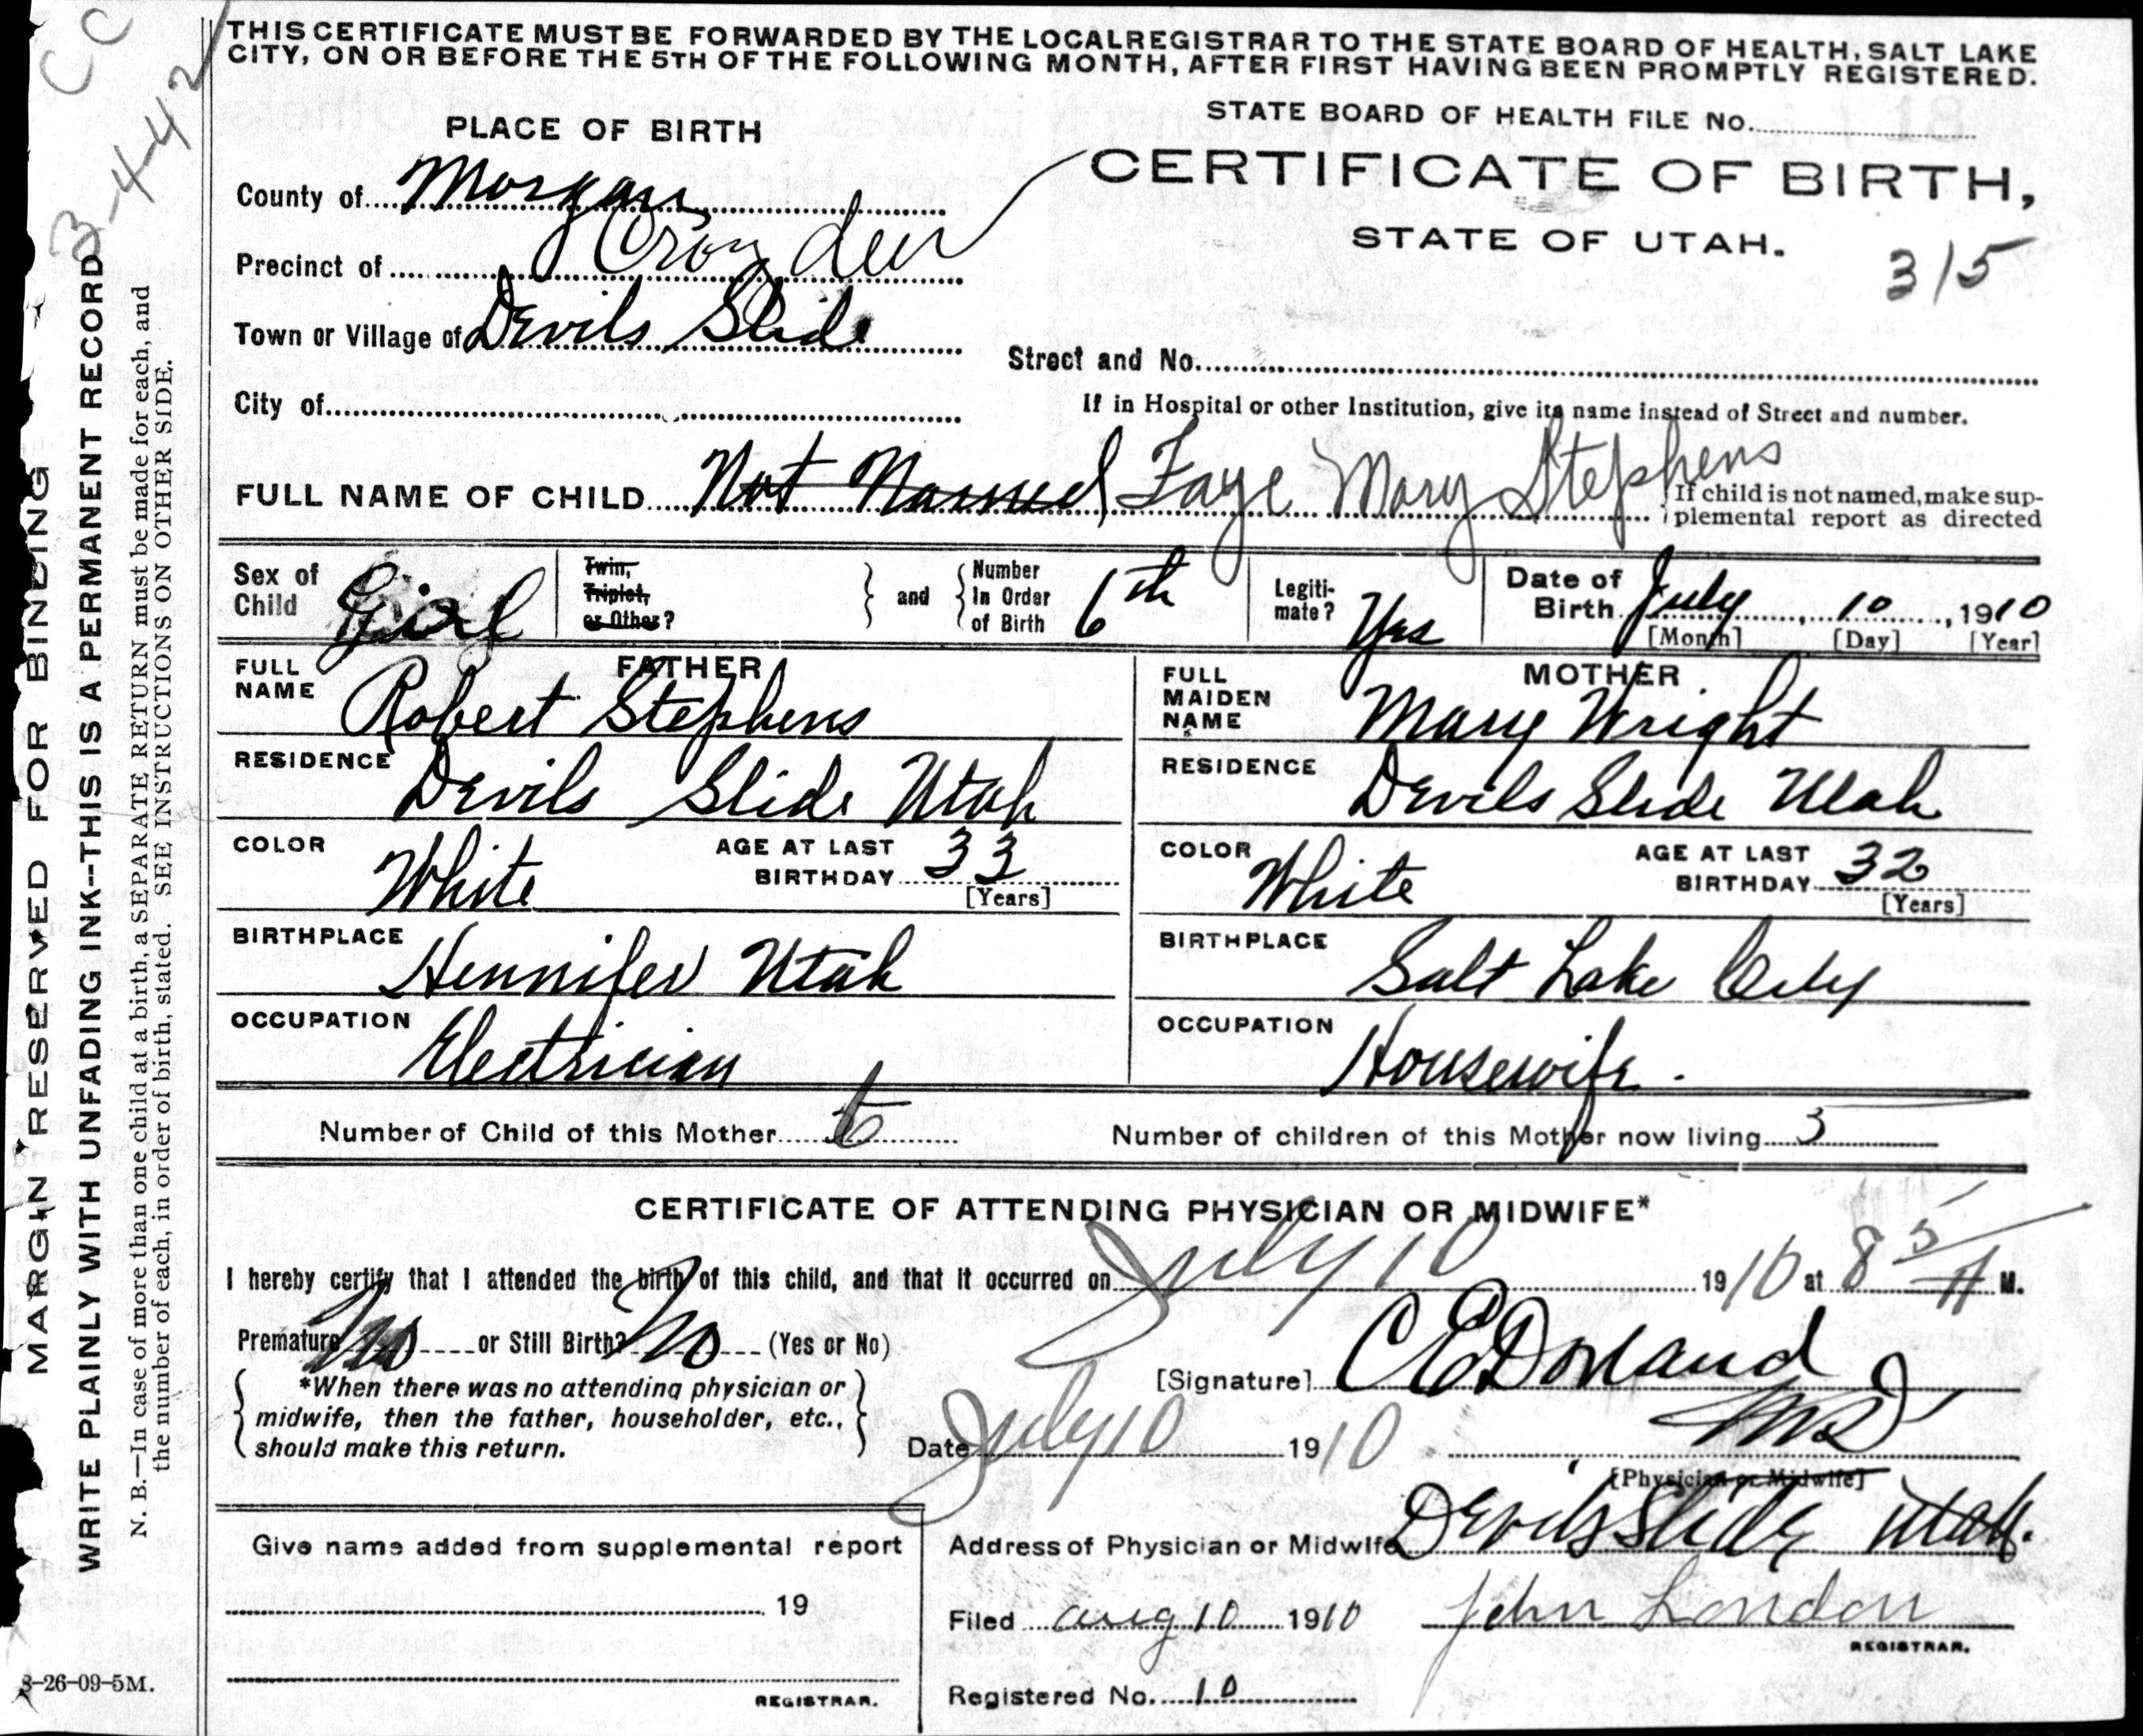 THIS CERTIFICATE MUST BE FORWARDED BY THE LOCAL REGISTRAR TO THE STATE BOARD OF HEALTH, SALT LAKE
CITY, ON OR BEFORE THE 5TH OF THE FOLLOWING MONTH, AFTER FIRST HAVING BEEN PROMPTLY REGISTERED.
CC
3-4-42
MARGIN RESERVED FOR BINDING
WRITE PLAINLY WITH UNFADING INK--THIS IS A PERMANENT RECORD.
N. B.—In case of more than one child at a birth, a SEPARATE RETURN must be made for each, and
the number of each, in order of birth, stated. SEE INSTRUCTIONS ON OTHER SIDE.
8-26-09-5M.
STATE BOARD OF HEALTH FILE No.
PLACE OF BIRTH
CERTIFICATE OF BIRTH,
STATE OF UTAH.
315
County of Morgan
Precinct of Croyden
Town or Village of Devils Slide
Street and No.
City of
If in Hospital or other Institution, give its name instead of Street and number.
FULL NAME OF CHILD Not Named Faye Mary Stephens
If child is not named, make sup-
plemental report as directed
Sex of Child Girl
Twin, Triplet, or Other?
and Number In Order of Birth 6th
Legiti- mate? Yes
Date of Birth July 10, 1910
[Month] [Day] [Year]
FATHER
FULL NAME Robert Stephens
RESIDENCE Devils Slide Utah
COLOR White AGE AT LAST BIRTHDAY 33
[Years]
BIRTHPLACE Hennifer Utah
OCCUPATION Electrician
MOTHER
FULL MAIDEN NAME Mary Wright
RESIDENCE Devils Slide Utah
COLOR White AGE AT LAST BIRTHDAY 32
[Years]
BIRTHPLACE Salt Lake City
OCCUPATION Housewife.
Number of Child of this Mother 6 Number of children of this Mother now living 3
CERTIFICATE OF ATTENDING PHYSICIAN OR MIDWIFE*
I hereby certify that I attended the birth of this child, and that it occurred on July 10 1910 at 8 5 A M.
Premature No or Still Birth? No (Yes or No)
*When there was no attending physician or
midwife, then the father, householder, etc.,
should make this return.
[Signature] C E Dorland
MD
Date July 10 1910
[Physician or Midwife]
Give name added from supplemental report
19
REGISTRAR.
Address of Physician or Midwife Devils Slide Utah.
Filed Aug 10 1910 John London
REGISTRAR.
Registered No. 10